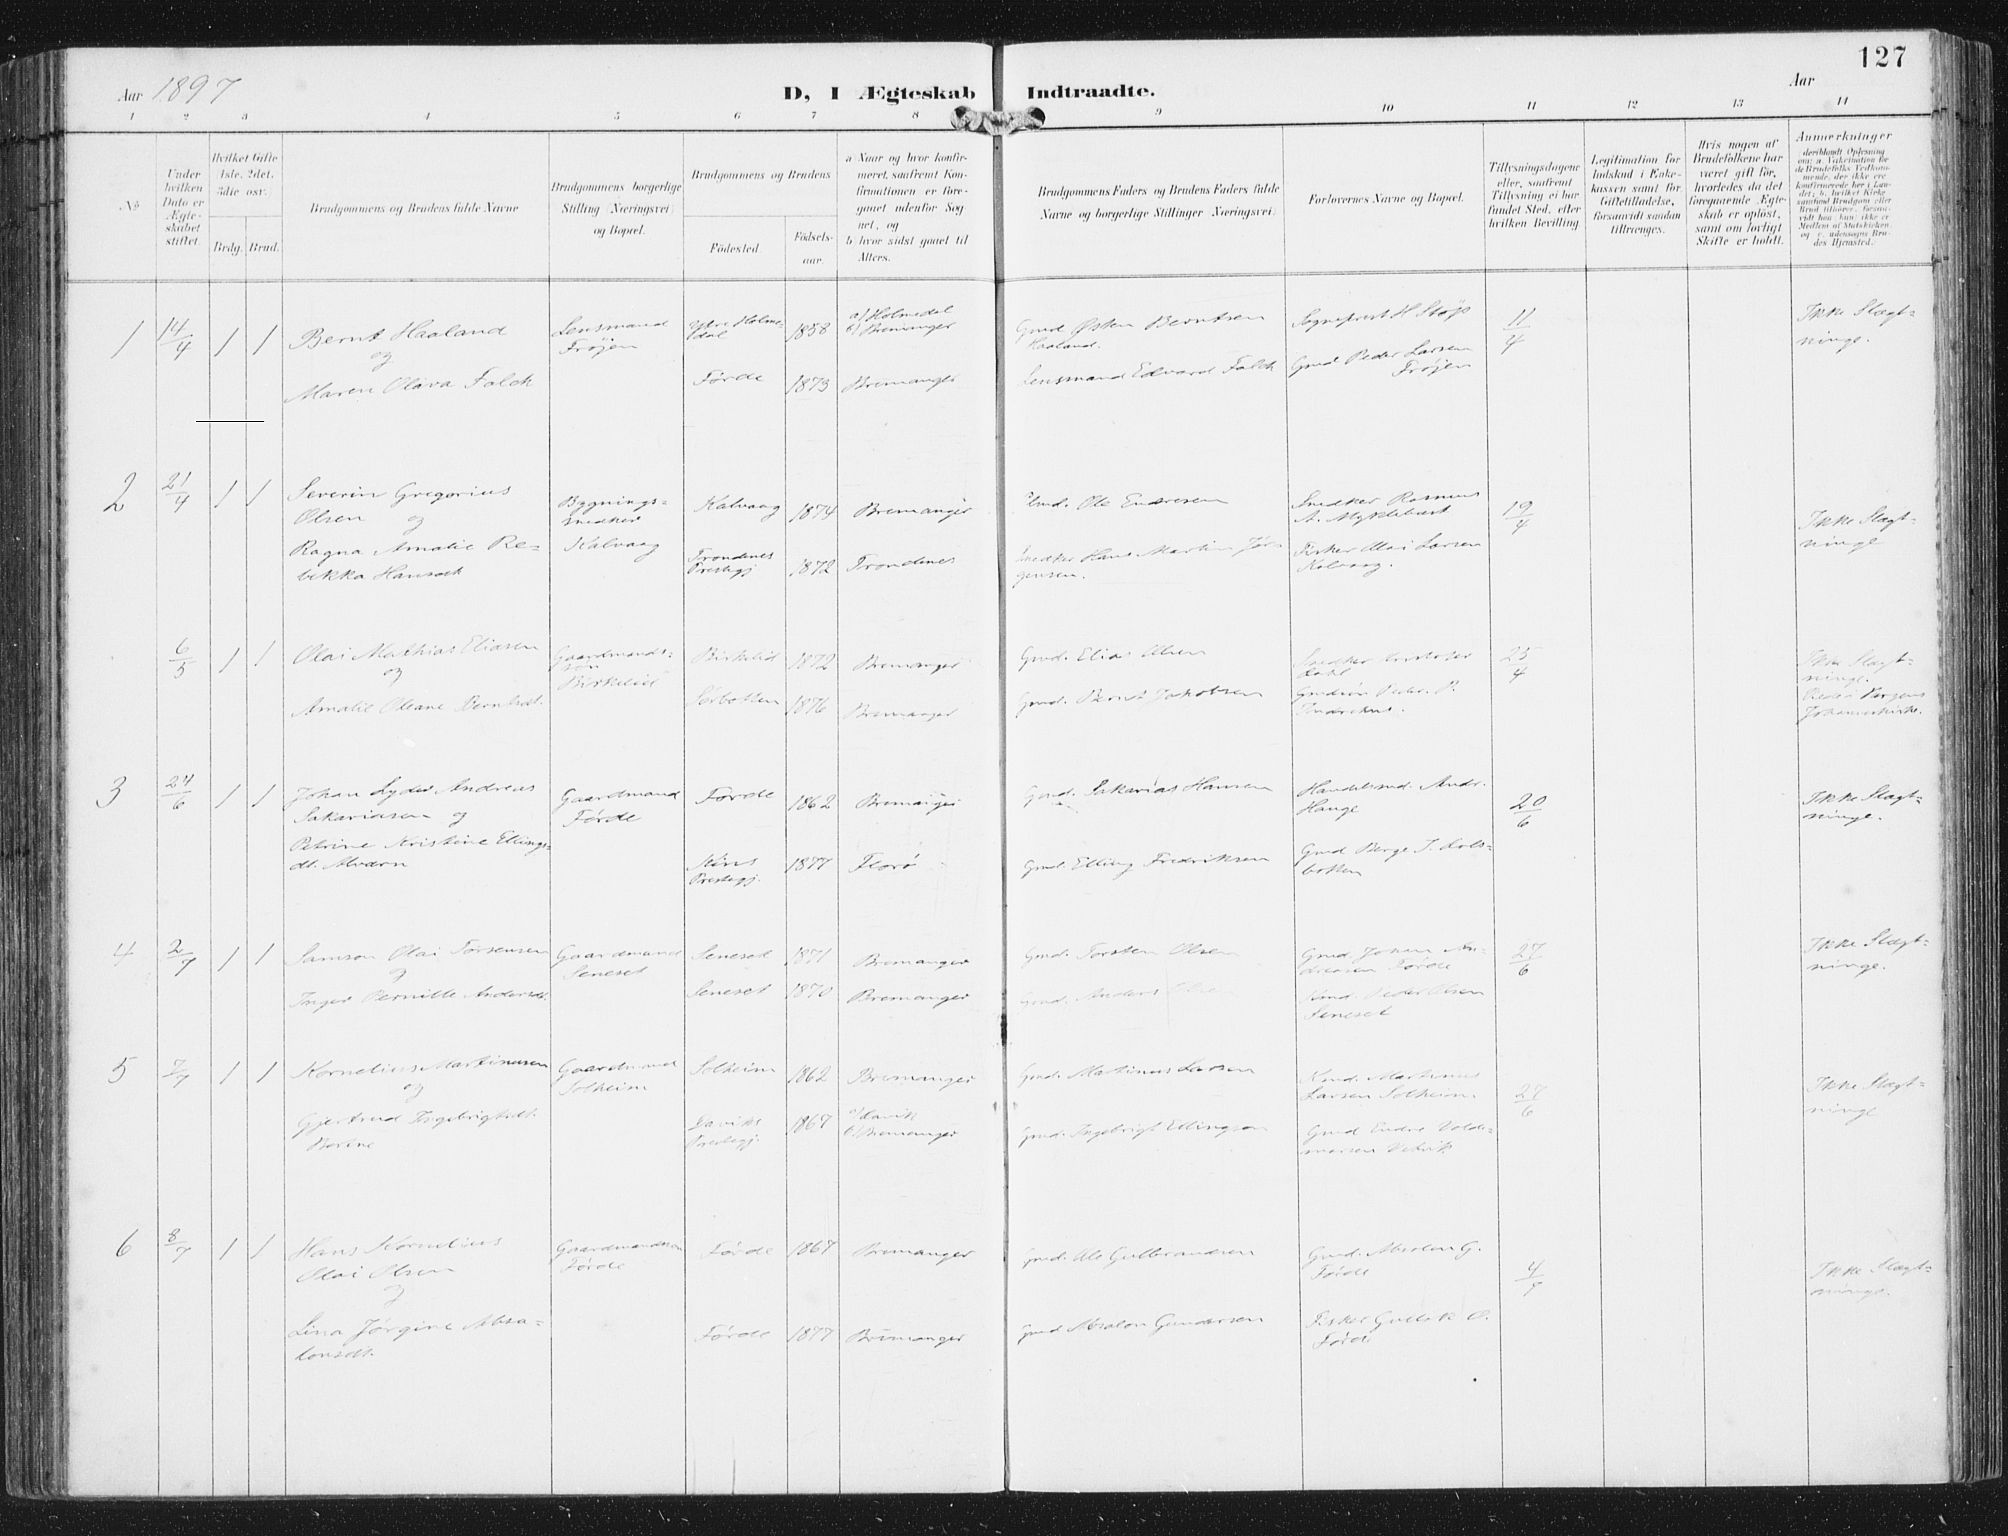 127
Aar 1897
D, I Ægteskab Indtraadte.
Aar
1 2 3 4 5 6 7 8 9 10 11 12 13 14
No
Under hvilken Dato er Ægteskabet stiftet.
Hvilket Gifte 1ste. 2det. 3die osv.
Brdg. Brud.
Brudgommens og Brudens fulde Navne
Brudgommens borgerlige Stilling (Næringsvei) og Bopæl.
Brudgommens og Brudens
Födested. Födselsaar.
a) Naar og hvor konfirmeret, saafremt Konfirmationen er foregaaet udenfor Sognet, og
b) hvor sidst gaaet til Alters.
Brudgommens Faders og Brudens Faders fulde Navne og borgerlige Stillinger (Næringsvei).
Forlovernes Navne og Bopæl.
Tillysningsdagene eller, saafremt Tillysning ei har fundet Sted, efter hvilken Bevilling
Legitimation for Indskud i Enkekassen samt for Giftetilladelse, forsaavidt saadan tiltrænges.
Hvis nogen af Brudefolkene har været gift för, hvorledes da det foregaaende Ægteskab er oplöst, samt om lovligt Skifte er holdt.
Anmærkninger
1 14/4 1 1 Bernt Haaland
og
Maren Oliva Falch
Lensmand
Fröjen
Ytre Holmedal 1858
a) Holmedal
b) Bremanger
Förde 1873 Bremanger
Gmd Østen Berntsen
Haaland.
Lensmand Edvard Falch
Sogneprest H Støp
Gmd Peder Larsen
Fröjen
11/4
Ikke Slægt-
ninge.
2 21/4 1 1 Severin Gregorius
Olsen og
Ragna Amalie Re-
bekka Hansdt
Bygnings-
snedker
Kalvaag
Kalvaag 1874 Bremanger
Trondenes
Prestegj 1872 Trondenes
Gmd. Ole Endresen
Snedker Hans Martin Jör-
gensen.
Snedker Rasmus
A. Myklebust
Fisker Olai Larsen
Kalvaag.
19/4
Ikke Slægt-
ninge
6/5 1 1 Olai Mathias Eliasen
og
Amalie Oleane Berntsdt.
Gaardmands-
søn
Birkelid
Birkelid 1872 Bremanger
Sörbotten 1876 Bremanger
Gmd. Elias Olsen
Gmd. Bernt Jakobsen
Snedker Kristofer
Gmdsön Peder P.
25/4
Ikke Slægt-
ninge.
Johanneskirke.
3 24/6 1 1 Johan Lyder Andreas
Sakariasen og
Petrine Kristine Ellings-
dt. Alværn
Gaardmand
Förde
Förde 1862 Bremanger
Kins
Prestegj. 1877 Florö
Gmd. Sakarias Hansen
Gmd. Elling Fredriksen
Handelsmd. Andr.
Hauge
Gmd Berge J. Kols-
botten
20/6
Ikke Slægt-
ninge.
4 2/7 1 1 Samson Olai Torsensen
og
Inger Pernille Andersdt.
Gaardmand
Seneset
Seneset 1871 Bremanger
Seneset 1870 Bremanger
Gmd. Torsten Olsen
Gmd. Anders Olsen
Gmd Johan An-
dreasen Förde
Kmd. Peder Olsen
Seneset
27/6
Ikke Slægt-
ninge.
5 7/7 1 1 Kornelius Martinusen
og
Gjertrud Ingebrigtsdt.
Berine
Gaardmand
Solheim
Solheim 1862 Bremanger
Daviks
Prestegj. 1867
a) Davik
b) Bremanger
Gmd. Martinus Larsen
Gmd. Ingebrigt Ellingson
Kmd. Martinus
Larsen Solheim.
Gmd Endre Valde-
marsen Vetvik
27/6
Ikke Slægt-
ninge
6 8/7 1 1 Hans Kornelius
Olai Olsen
og
Lina Jørgine Absa-
lonsdt.
Gaardmandssön
Förde
Förde 1867 Bremanger
Förde 1877 Bremanger
Gmd. Ole Gulbrandsen
Gmd Absalon Gundersen
Gmd. Absalon G.
Förde
Fisker Gullak O.
Förde
4/7
Ikke Slægt-
ninge.